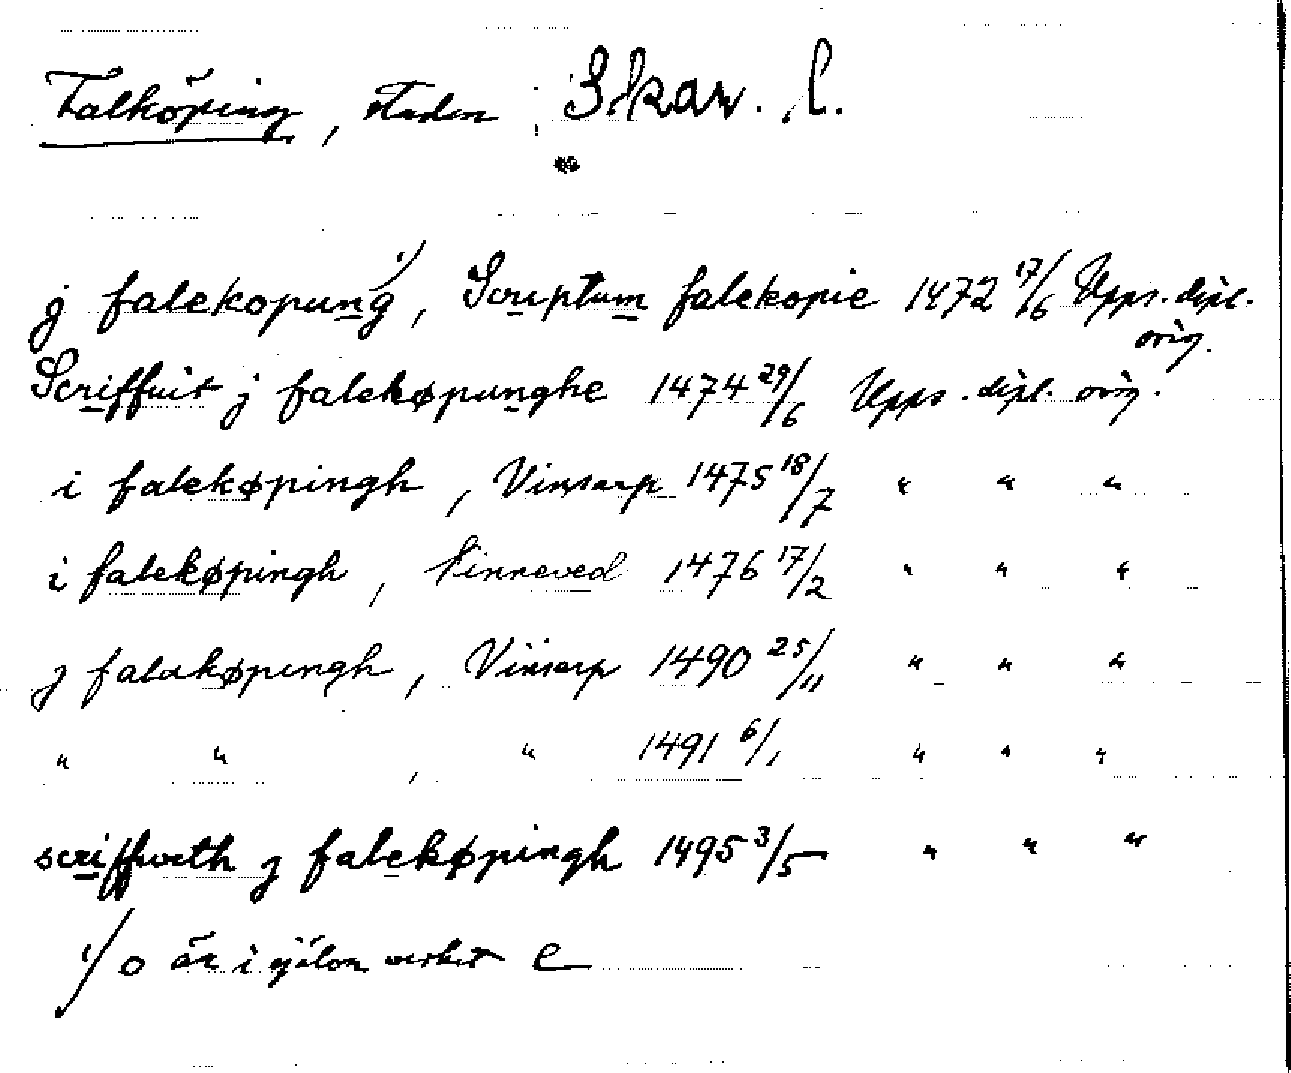 Falköping, staden Skar. l.
j falekopung 1), Scriptum falekopie 1472 17/6 Upps. dipl. orig.
Scriffuit j falekøpunghe 1474 29/6 Upps. dipl. orig.
i falekøpingh, Vinsarp 1475 18/7 " " "
i falekøpingh, Vinneved 1476 17/2 " " "
j falakøpingh, Vinsarp 1490 25/11 " " "
" " , " 1491 6/1 " " "
scriffwith j falekøpingh 1495 3/5 " " "
1/ o är i själva verket e